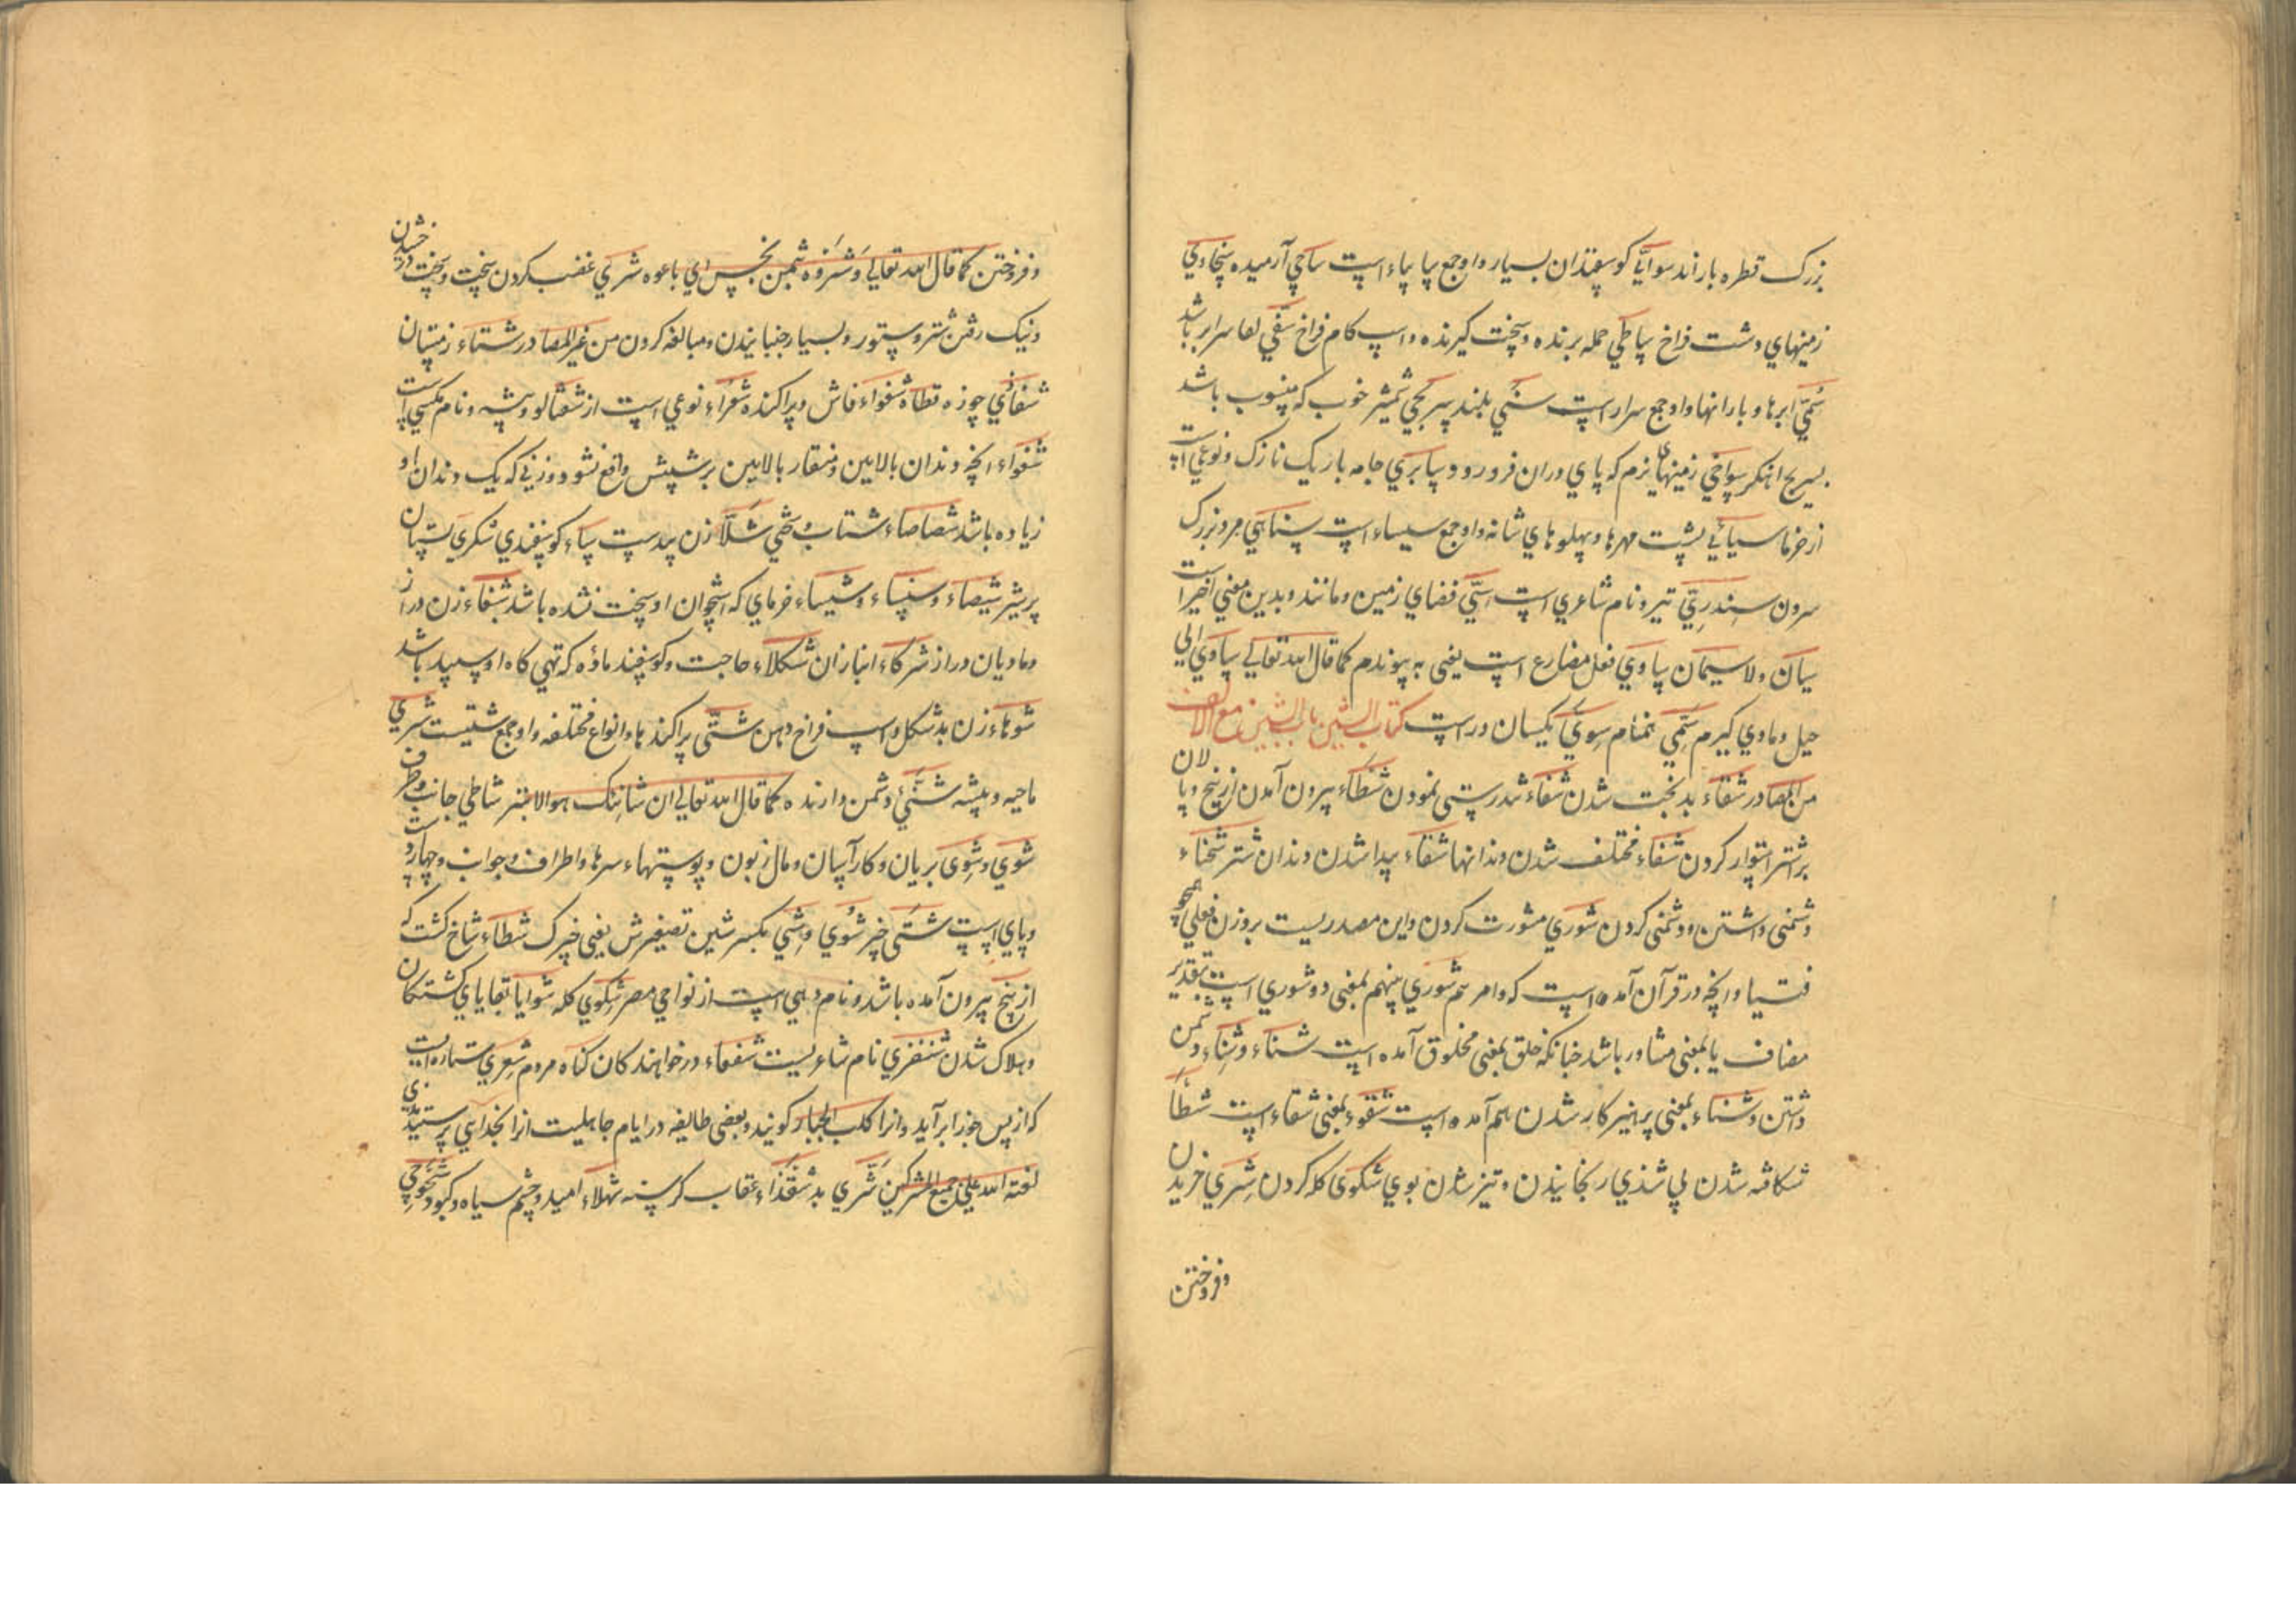 بزرک قطره باراند سوایٔا کوسفندان بسیار واو جمع سایاء است ساجی آرمیده سجاوی
زمینهای دشت فراخ ساطی حمله برنده و سخت کیرنده واسپ کام فراخ سفی لها سرابر باشد
سمی ابرها و بارانها واو جمع سرار است سنی بلند سریجی شمشیر خوب که منسوب باشد
بسریج اهنکر سواخی زمینهای نرم که پای دران فرو رود و سابری جامه باریک نازک و نوعی است
از خرما سیایی پشت مهرها و پهلوهای شانه واو جمع سیساء است سناهی مرد بزرک
سرون سندری تیر و نام شاعری است سی فضای زمین و مانند و بدین معنی اخیر است
سیان ولا سیمان ساوی فعل مضارع است یعنی به پیوندم کما قال الله تعالی ساوی الی
جبل و ماوی کیرم ستمی همنام سوی یکسان و راست کتاب الشین باب الشین مع الالف
من المصادر شقاء بدبخت شدن شفاء تندرستی نمودن شطاء بیرون آمدن از بیخ و پالان
بر شتر استوار کردن شغاء مختلف شدن دندانها شقاء پیدا شدن دندان شتر شحناء
دشمنی داشتن و دشمنی کردن شوری مشورت کردن و این مصدریست بروزن فعلی همچو
فتیا و انچه در قرآن آمده است که وامرهم شوری بینهم بمعنی ذو شوری است بتقدیر
مضاف یا بمعنی مشاور باشد چنانکه خلق بمعنی مخلوق آمده است شناء و شناء دشمن
داشتن و شناء بمعنی پرهیزکار شدن هم آمده است شقوء بمعنی شقاء است شطأ
شکافته شدن پی شذی رنجانیدن و تیز شدن بوی شکوی کله کردن شری خریدن
وفروختن
وفروختن کما قال الله تعالی وشروه بثمن بخس ای باعوه شری غضب کردن سخت و سخت درخشیدن
و نیک رفتن شتر و ستور و بسیار جنبانیدن و مبالغه کردن من غیر المصادر شتاء زمستان
شغاوی چوزه قطاة شغواء فاش و پراکنده شعراء نوعی است از شفتالو و پشه و نام مکسی است
شغواء انچه دندان بالایین و منقار بالایین بر پیشش واقع شود و زنی که یک دندان او
زیاده باشد شصاصاء شتاب و سختی شلا زن بدست سیاء کوسفندی شکری پستان
پر شیر شیصاء و سنیساء و شیساء خرمای که استخوان او سخت نشده باشد شفاء زن دراز
و مادیان دراز شرکاء انبازان شکلاء حاجت و کوسفند ماده که تهی کاه او سپید باشد
شوهاء زن بدشکل و اسپ فراخ دهن شتی پراکندها و انواع مختلفه واو جمع شتیت است شری
ناحیه و بیشه شنی دشمن دارنده کما قال الله تعالی ان شانئک هوالابتر شاطی جانب و طرف
شوی و شوی بریان و کار آسان و مال زبون و پوستهاء سرها و اطراف و جوانب و چهار دست
و پای است شتی خیر شوی و شیی بکسر شین تصغیرش یعنی چیزک شطاء شاخ کشت که
از بیخ بیرون آمده باشد و نام دهی است از نواحی مصر شکوی کله شوایا بقایای کشتکان
و هلاک شدن شنفری نام شاعریست شفعاء درخواهندکان کناه مردم شعری ستاره ایست
که از پس جوزا برآید وانرا کلب الجبار کویند و بعضی طایفه در ایام جاهلیت انرا بخدایی پرستیدندی
لعنة الله علی جمیع المشرکین شری بد شقذاء عقاب کرسنه شهلاء امید و چشم سیاه و کبود شحوحی